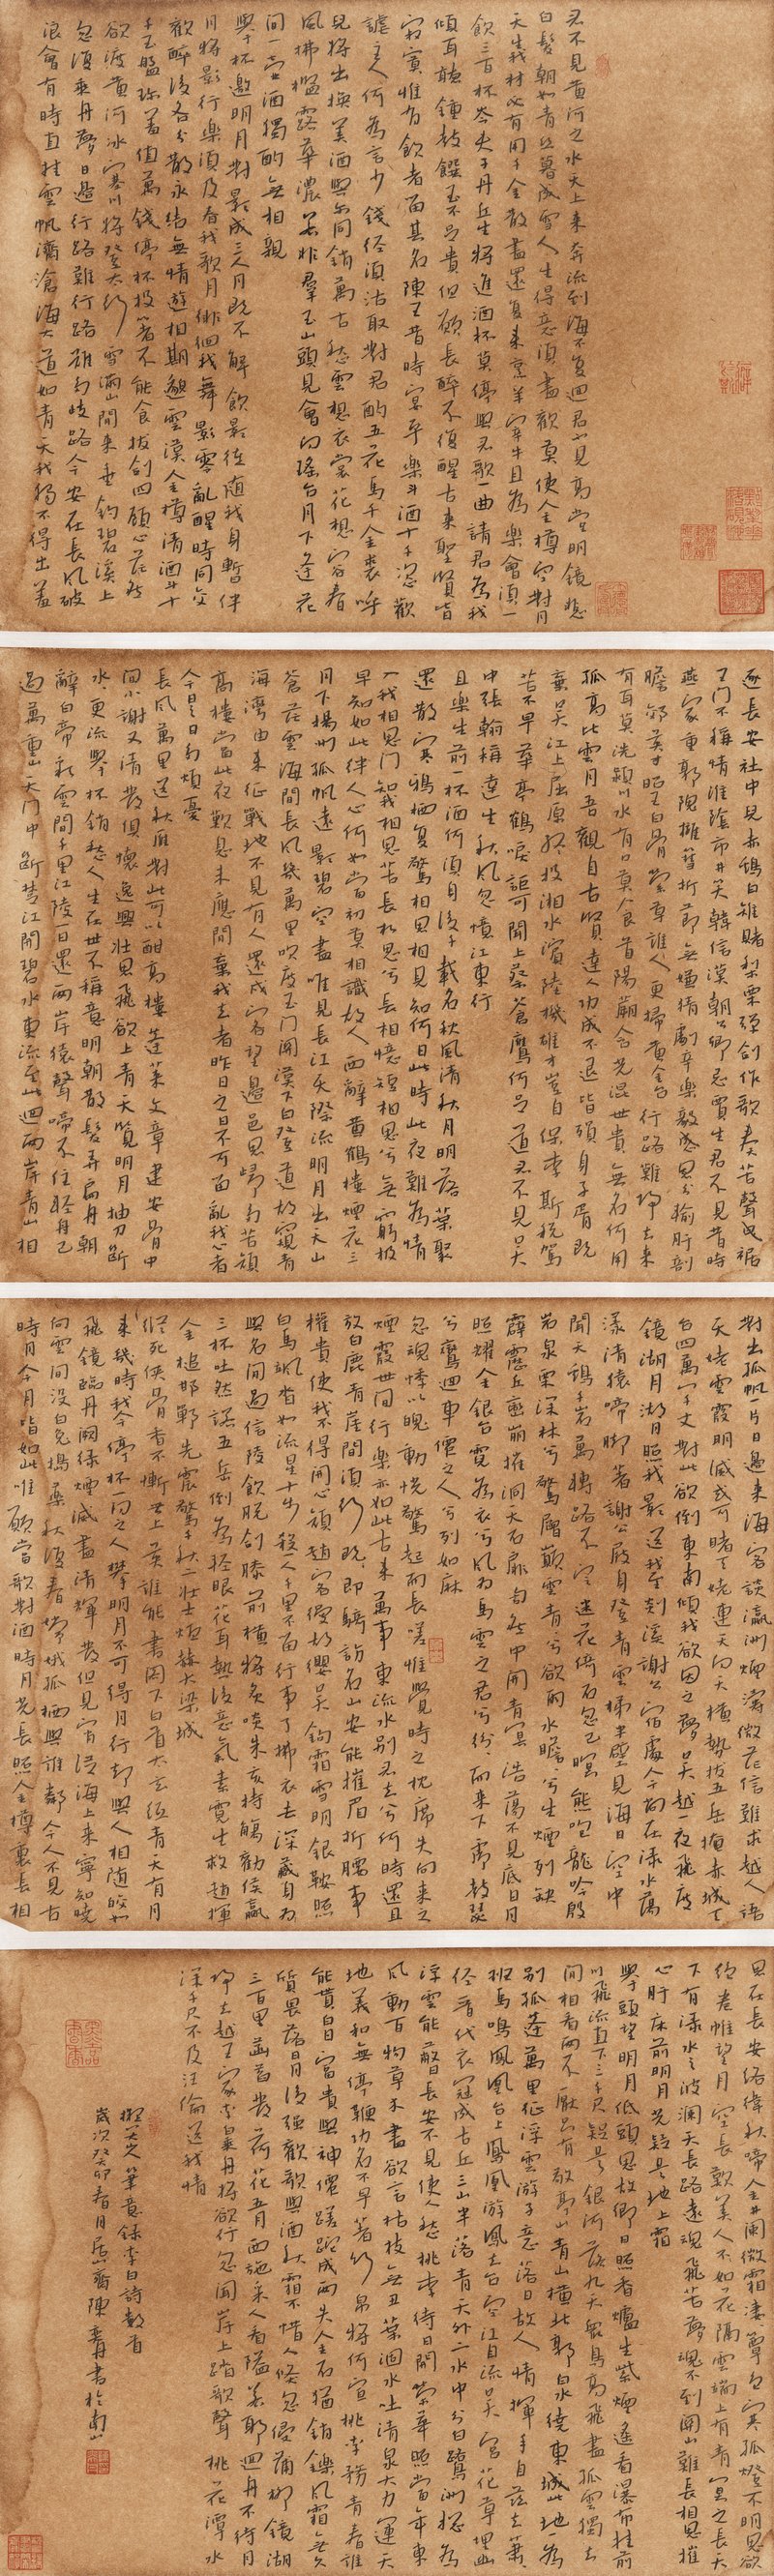 君不見黃河之水天上來奔流到海不復迴君不見高堂明鏡悲
白髮朝如青絲暮成雪人生得意須盡歡莫使金樽空對月
天生我材必有用千金散盡還復來烹羊宰牛且為樂會須一
飲三百杯岑夫子丹丘生將進酒杯莫停與君歌一曲請君為我
傾耳聽鐘鼓饌玉不足貴但願長醉不復醒古來聖賢皆
寂寞惟有飲者留其名陳王昔時宴平樂斗酒十千恣歡
謔主人何為言少錢徑須沽取對君酌五花馬千金裘呼
兒將出換美酒與爾同銷萬古愁雲想衣裳花想容春
風拂檻露華濃若非羣玉山頭見會向瑤台月下逢花
間一壺酒獨酌無相親
舉杯邀明月對影成三人月既不解飲影徒隨我身暫伴
月將影行樂須及春我歌月徘徊我舞影零亂醒時同交
歡醉後各分散永結無情遊相期邈雲漢金樽清酒斗十
千玉盤珍羞值萬錢停杯投箸不能食拔劍四顧心茫然
欲渡黃河冰塞川將登太行雪滿山閒來垂釣碧溪上
忽復乘舟夢日邊行路難行路難多歧路今安在長風破
浪會有時直挂雲帆濟滄海大道如青天我獨不得出羞
逐長安社中兒赤雞白雉賭梨栗彈劍作歌奏苦聲曳裾
王門不稱情淮陰市井笑韓信漢朝公卿忌賈生君不見昔時
燕家重郭隗擁篲折節無嫌猜劇辛樂毅感恩分輸肝剖
膽效英才昭王白骨縈蔓草誰人更掃黃金台行路難歸去來
有耳莫洗潁川水有口莫食首陽蕨含光混世貴無名何用
孤高比雲月吾觀自古賢達人功成不退皆殞身子胥既
棄吳江上屈原終投湘水濱陸機雄才豈自保李斯稅駕
苦不早華亭鶴唳詎可聞上蔡蒼鷹何足道君不見吳
中張翰稱達生秋風忽憶江東行
且樂生前一杯酒何須身後千載名秋風清秋月明落葉聚
還散寒鴉栖復驚相思相見知何日此時此夜難為情
入我相思門知我相思苦長相思兮長相憶短相思兮無窮極
早知如此絆人心何如當初莫相識故人西辭黃鶴樓煙花三
月下揚州孤帆遠影碧空盡唯見長江天際流明月出天山
蒼茫雲海間長風幾萬里吹度玉門關漢下白登道胡窺青
海灣由來征戰地不見有人還戍客望邊邑思歸多苦顏
高樓當此夜歎息未應閒棄我去者昨日之日不可留亂我心者
今日之日多煩憂
長風萬里送秋雁對此可以酣高樓蓬萊文章建安骨中
間小謝又清發俱懷逸興壯思飛欲上青天覽明月抽刀斷
水水更流舉杯銷愁人生在世不稱意明朝散髮弄扁舟朝
辭白帝彩雲間千里江陵一日還兩岸猿聲啼不住輕舟已
過萬重山天門中斷楚江開碧水東流至此迴兩岸青山相
對出孤帆一片日邊來海客談瀛洲煙濤微茫信難求越人語
天姥雲霞明滅或可睹天姥連天向天橫勢拔五岳掩赤城天
台四萬八千丈對此欲倒東南傾我欲因之夢吳越一夜飛度
鏡湖月湖月照我影送我至剡溪謝公宿處今尚在淥水蕩
漾清猿啼腳著謝公屐身登青雲梯半壁見海日空中
聞天雞千岩萬轉路不定迷花倚石忽已暝熊咆龍吟殷
岩泉栗深林兮驚層巔雲青青兮欲雨水澹澹兮生煙列缺
霹靂丘巒崩摧洞天石扉訇然中開青冥浩蕩不見底日月
照耀金銀台霓為衣兮風為馬雲之君兮紛紛而來下虎鼓瑟
兮鸞迴車僊之人兮列如麻
忽魂悸以魄動恍驚起而長嗟惟覺時之枕席失向來之
煙霞世間行樂亦如此古來萬事東流水別君去兮何時還且
放白鹿青崖間須行既即騎訪名山安能摧眉折腰事
權貴使我不得開心顏趙客縵胡纓吳鉤霜雪明銀鞍照
白馬颯沓如流星十步殺一人千里不留行事了拂衣去深藏身
與名閒過信陵飲脫劍膝前橫將炙啖朱亥持觴勸侯嬴
三杯吐然諾五岳倒為輕眼花耳熱後意氣素霓生救趙揮
金槌邯鄲先震驚千秋二壯士烜赫大梁城
縱死俠骨香不慚世上英誰能書閣下白首太玄經青天有月
來幾時我今停杯一問之人攀明月不可得月行卻與人相隨皎如
飛鏡臨丹闕綠煙滅盡清輝發但見宵從海上來寧知曉
向雲間沒白兔搗藥秋復春嫦娥孤栖與誰鄰今人不見古
時月今月皆如此唯願當歌對酒時月光長照金樽裏長相
思在長安絡緯秋啼金井闌微霜淒淒簟色寒孤燈不明思欲
絕卷帷望月空長歎美人如花隔雲端上有青冥之長天
下有淥水之波瀾天長路遠魂飛苦夢魂不到關山難長相思摧
心肝床前明月光疑是地上霜
舉頭望明月低頭思故鄉日照香爐生紫煙遙看瀑布挂前
川飛流直下三千尺疑是銀河落九天眾鳥高飛盡孤雲獨去
閒相看兩不厭只有敬亭山青山橫北郭白水繞東城此地一為
別孤蓬萬里征浮雲游子意落日故人情揮手自茲去蕭蕭
班馬鳴鳳凰台上鳳凰游鳳去台空江自流吳宮花草埋幽
徑晉代衣冠成古丘三山半落青天外二水中分白鷺洲總為
浮雲能蔽日長安不見使人愁桃李待日開榮華照當年東
風動百物草木盡欲言枯枝無丑葉涸水吐清泉大力運天
地羲和無停鞭功名不早著竹帛將何宣桃李務青春誰
能貰白日富貴與神僊蹉跎成兩失金石猶銷鑠風霜無久
質畏落日月後強歡歌與酒秋霜不惜人倏忽侵蒲柳鏡湖
三百里菡萏發荷花五月西施采人看隘若耶迴舟不待月
歸去越王家李白乘舟將欲行忽聞岸上踏歌聲桃花潭水
深千尺不及汪倫送我情
擬古人筆意錄李白詩數首
歲次癸卯春月居山齋陳舜丹書於南山